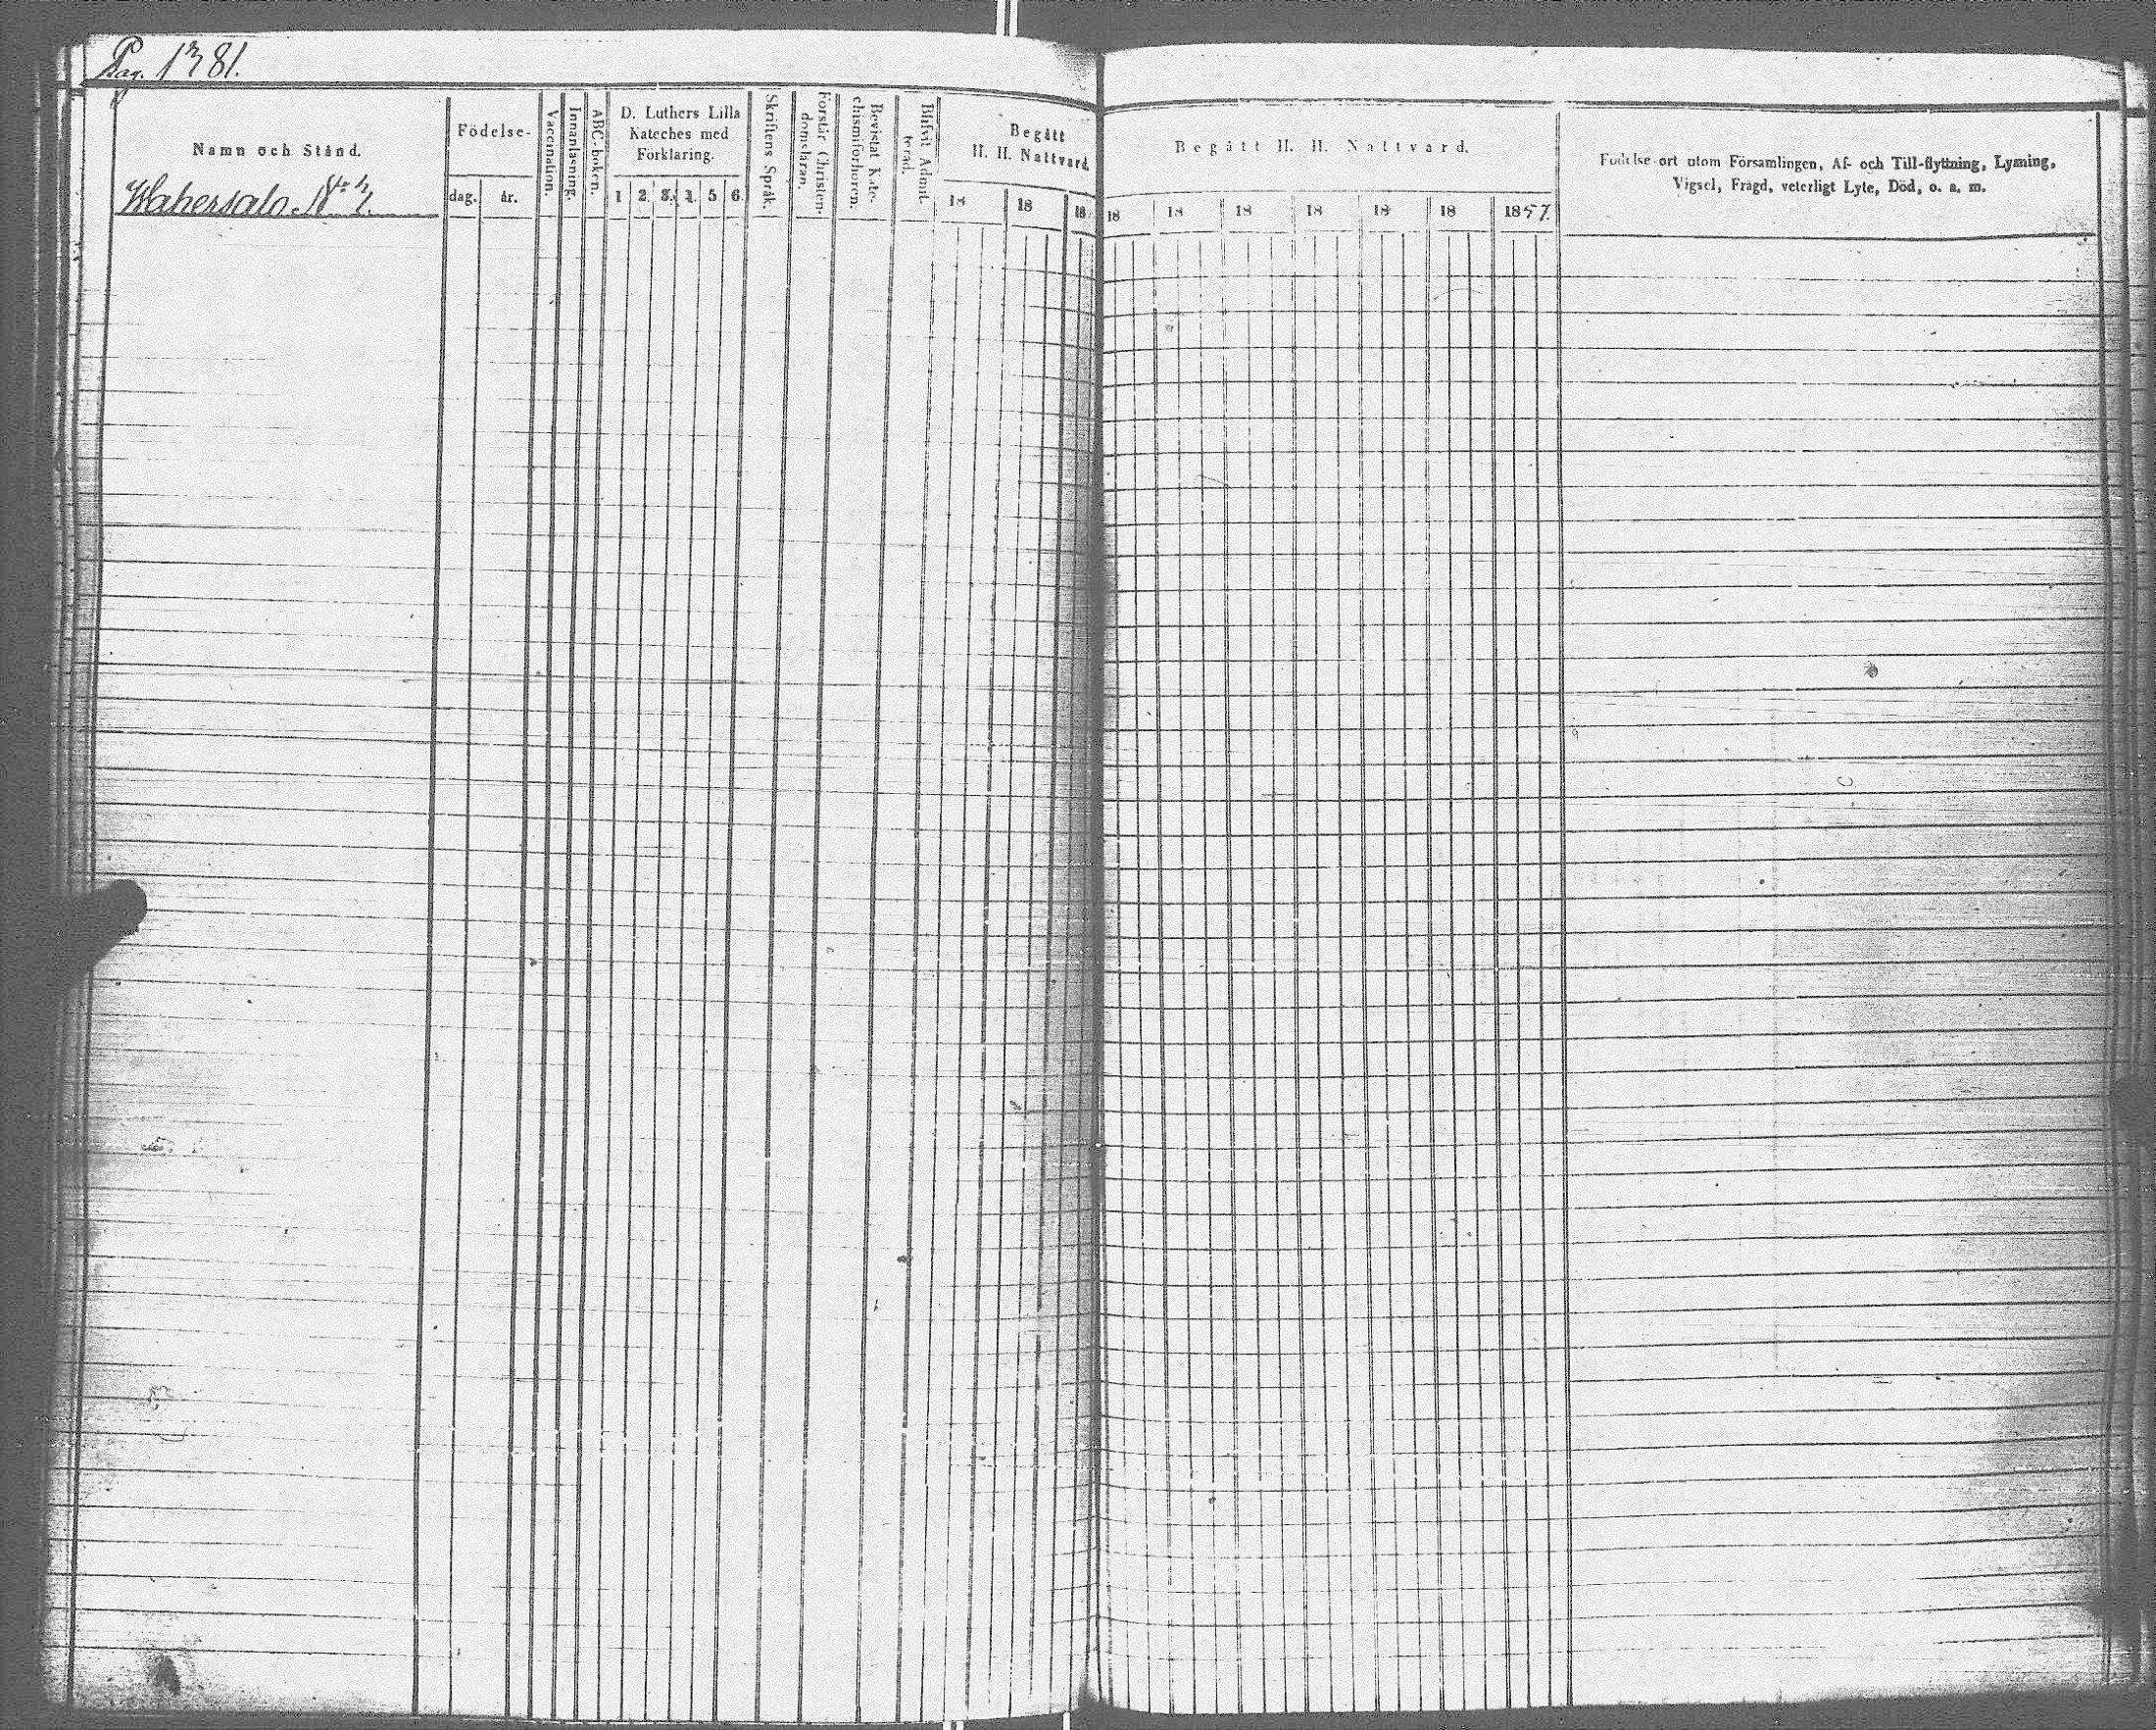 Pag. 1381.
Namn och Stånd.
Wahersalo N:o 3.
Födelse-
dag.
år.
Vaccination.
Innanläsning.
ABC-boken.
D. Luthers Lilla
Kateches med
Förklaring.
1 2. 3. 4. 5 6
Skriftens Språk.
Förstår Christen-
domsläran.
Bevistat Kate-
chismiförhören.
Blifvit Admit-
terad.
Begått
H. H. Nattvard.
18 18 18
Begått H. H. Nattvard.
18 18 18 18 18 18 1857.
Födelse-ort utom Församlingen, Af- och Till-flyttning, Lysning,
Vigsel, Frägd, veterligt Lyte, Död, o. a. m.